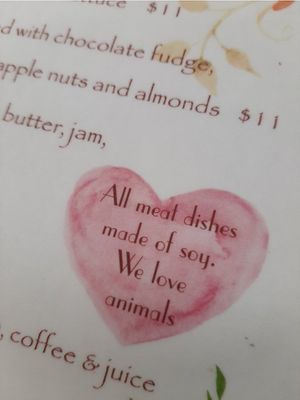 $11
d with chocolate fudge,
apple nuts and almonds $11
butter, jam,
All meat dishes
made of soy.
We love
animals
, coffee & juice